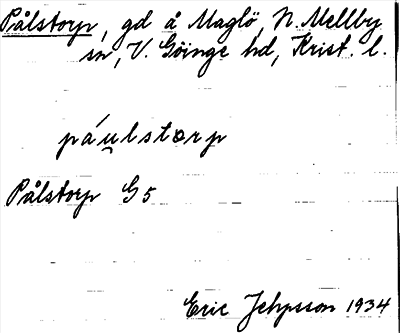 Pålstorp, gd å Maglö, N. Mellby
sn, V. Göinge hd, Krist. l.
páu̯lstorp
Pålstorp G5
Eric Jehpsson 1934